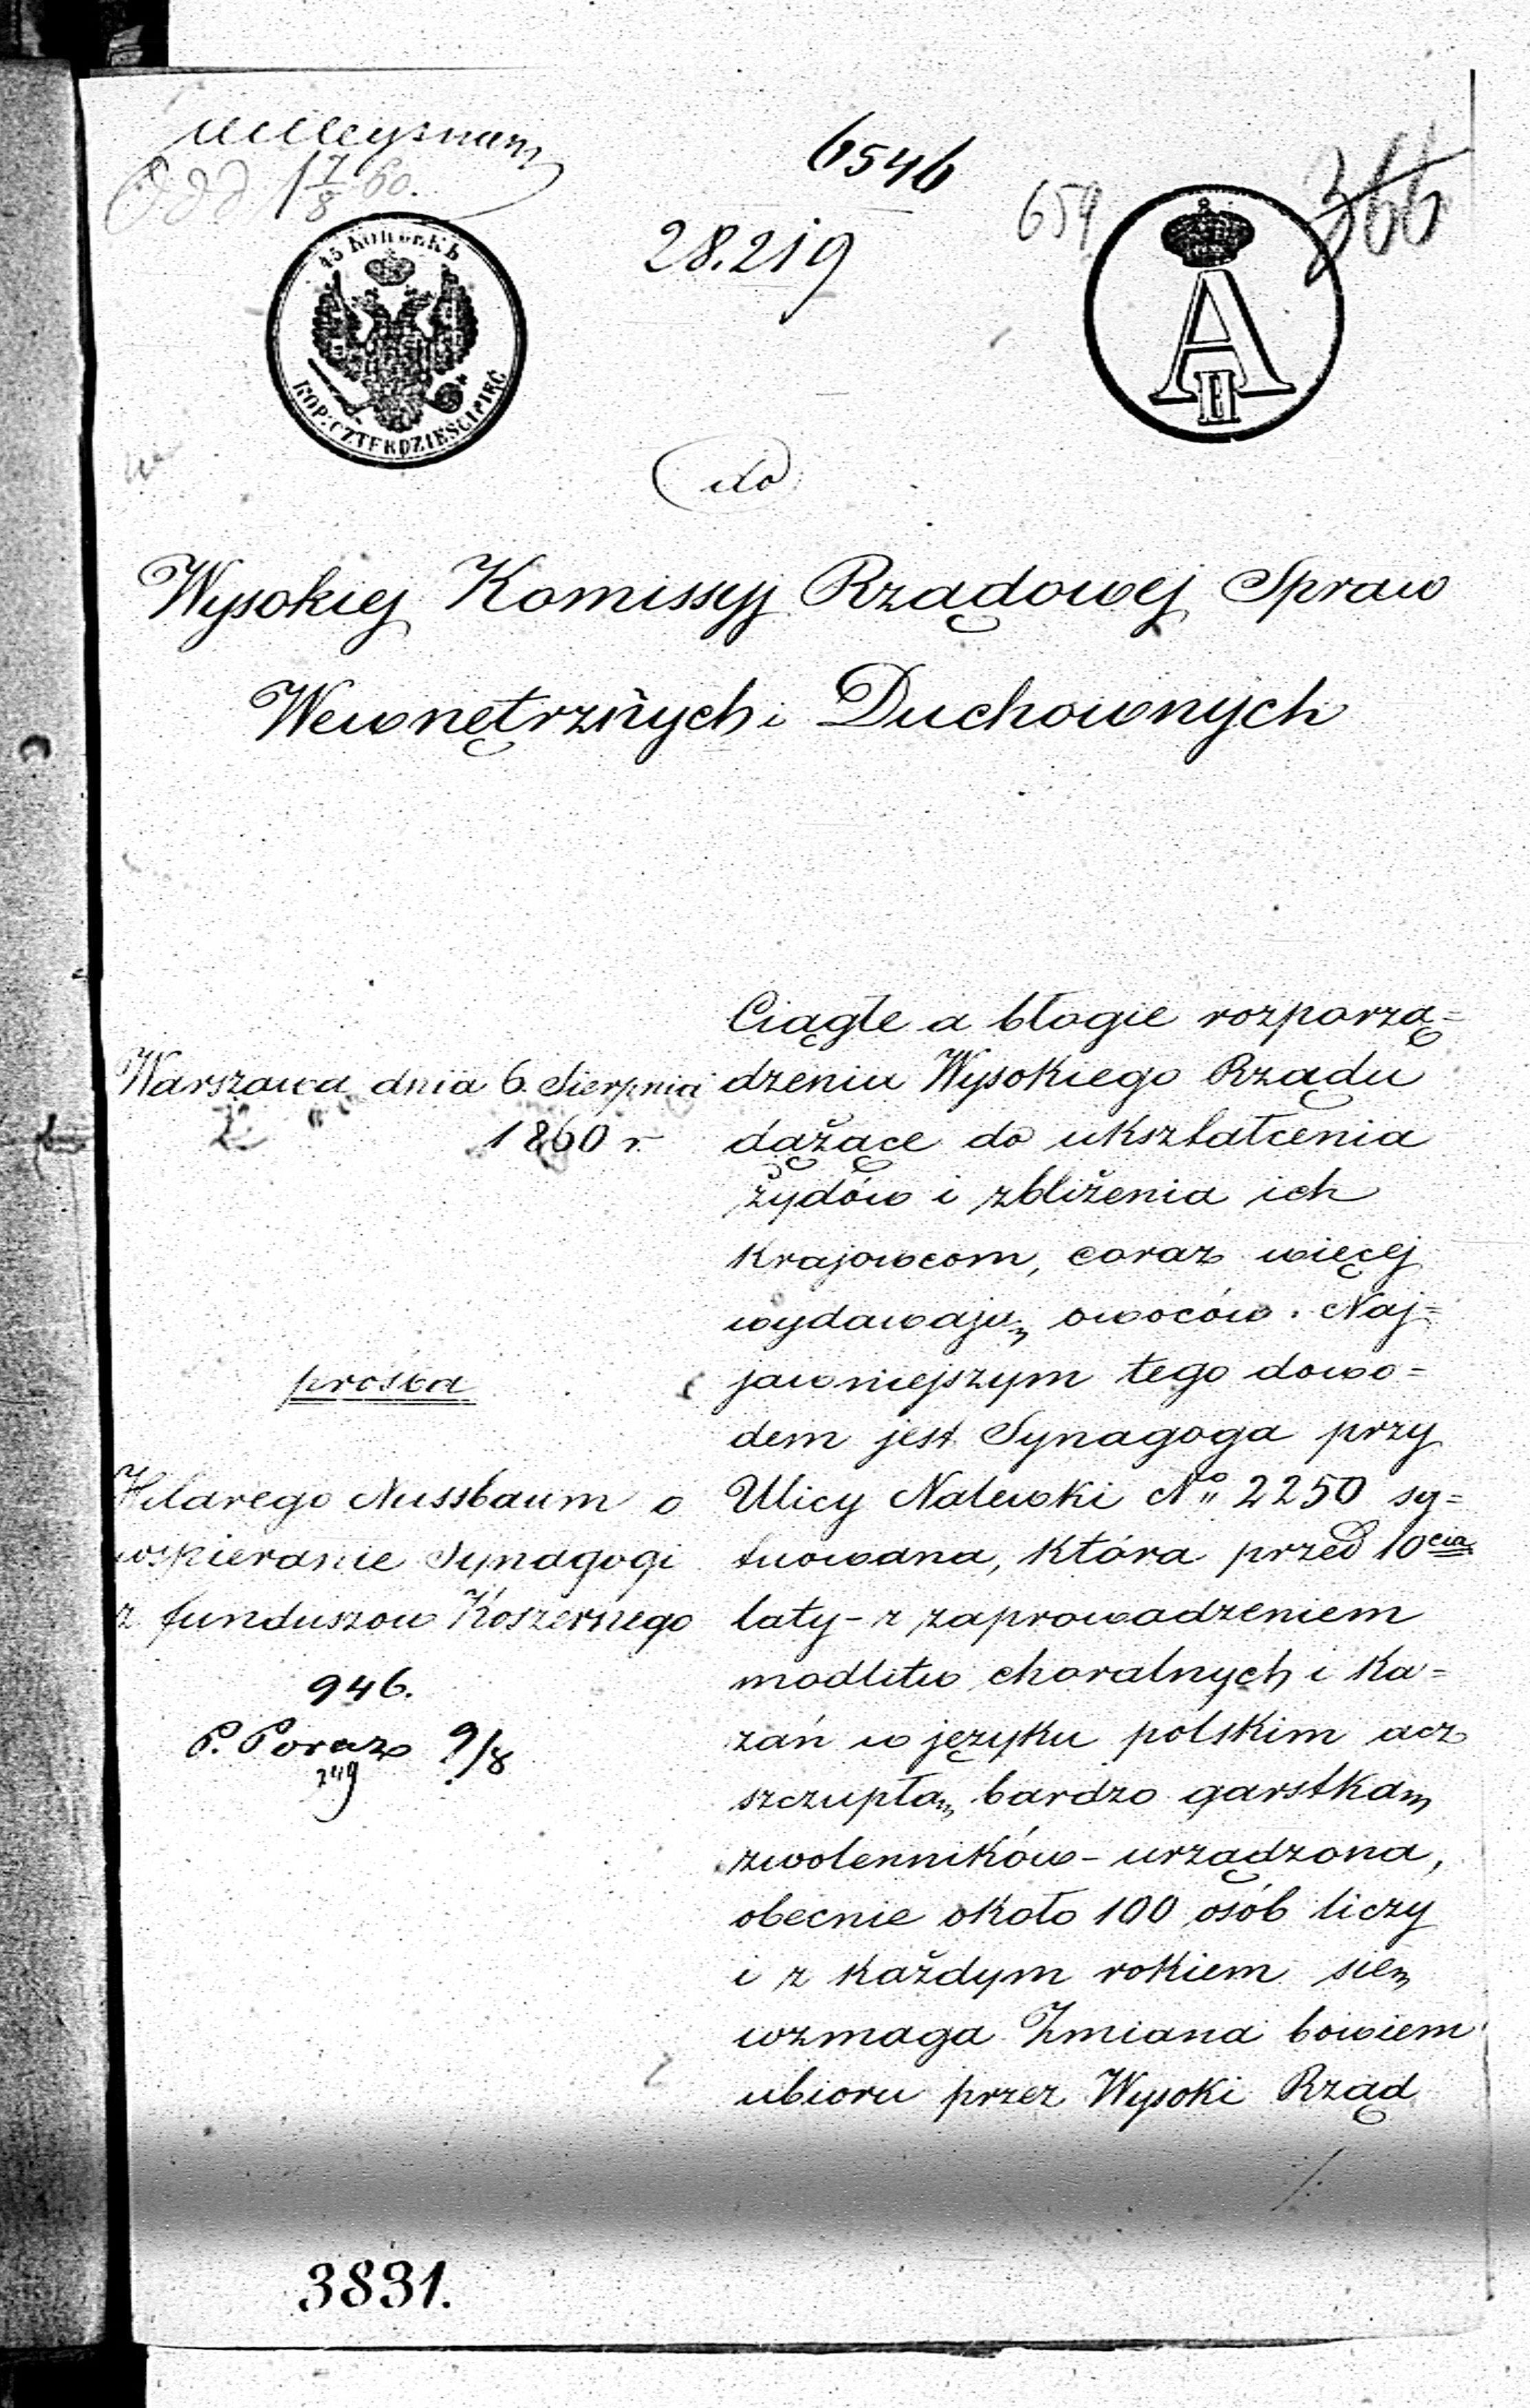 6546
28.219
659
366
45 КОПѢЕКЪ
KOP: CZTERDZIEŚCI PIĘĆ
A II
do
Wysokiej Komissyj Rządowej Spraw
Wewnętrznych i Duchownych
Warszawa dnia 6. Sierpnia
1860 r.
prośba
Hilarego Nussbaum o
wspieranie Synagogi
z funduszow Koszernego
946.
P. Poraz 9/8
249
Ciągłe a błogie rozporzą=
dzenia Wysokiego Rządu
dążące do ukształcenia
żydów i zbliżenia ich
Krajowcom, coraz więcej
wydawają owoców. Naj=
jawniejszym tego dowo=
dem jest Synagoga przy
Ulicy Nalewki No 2250 sy=
tuowana, która przed 10cia
laty - z zaprowadzeniem
modlitw choralnych i Ka=
zań w języku polskim acz
szczupłą bardzo garstką
zwolenników - urządzona,
obecnie około 100 osób liczy
i z każdym rokiem się
wzmaga Zmiana bowiem
ubioru przez Wysoki Rząd
/:
3831.